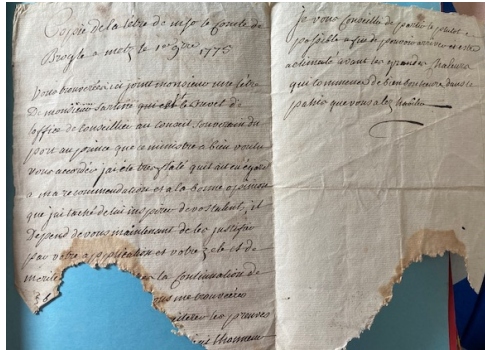 Copie de la letre de mr le Comte de
Broglie a metz le 1er 9bre 1775
vous trouverées ici joint monsieur une letre
De monsieur sartine qui est le brevet de
l'office de Conseiller au Conseil souverain du
port au prince que ce ministre a bien voulu
vous accorder j'ai été tres flaté qu'il ait eu égard
a ma recommendation et a la bonne opinion
que j'ai taché de lui inspirer de vos talents, il
Depend de vous maintenant de les justifier
par votre application et votre zele et de
merite la Continuation de
vous me trouverées
les preuves
l'honneur
je vous Conseille de partir le plutot
possible afin de pouvoir arriver et etre
aclimaté avant les grandes Chaleurs
qui Commence de bien bonheure dans le
païs que vous alez habiter